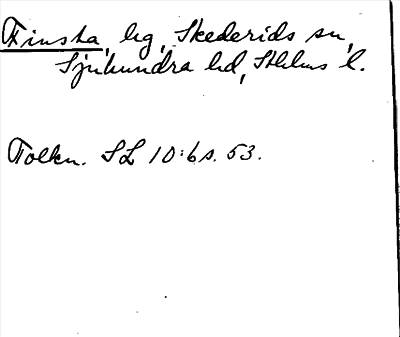 Finsta, hg, Skederids sn,
Sjuhundra hd, Sthlms l.
Tolkn. SL 10:6 s. 53.